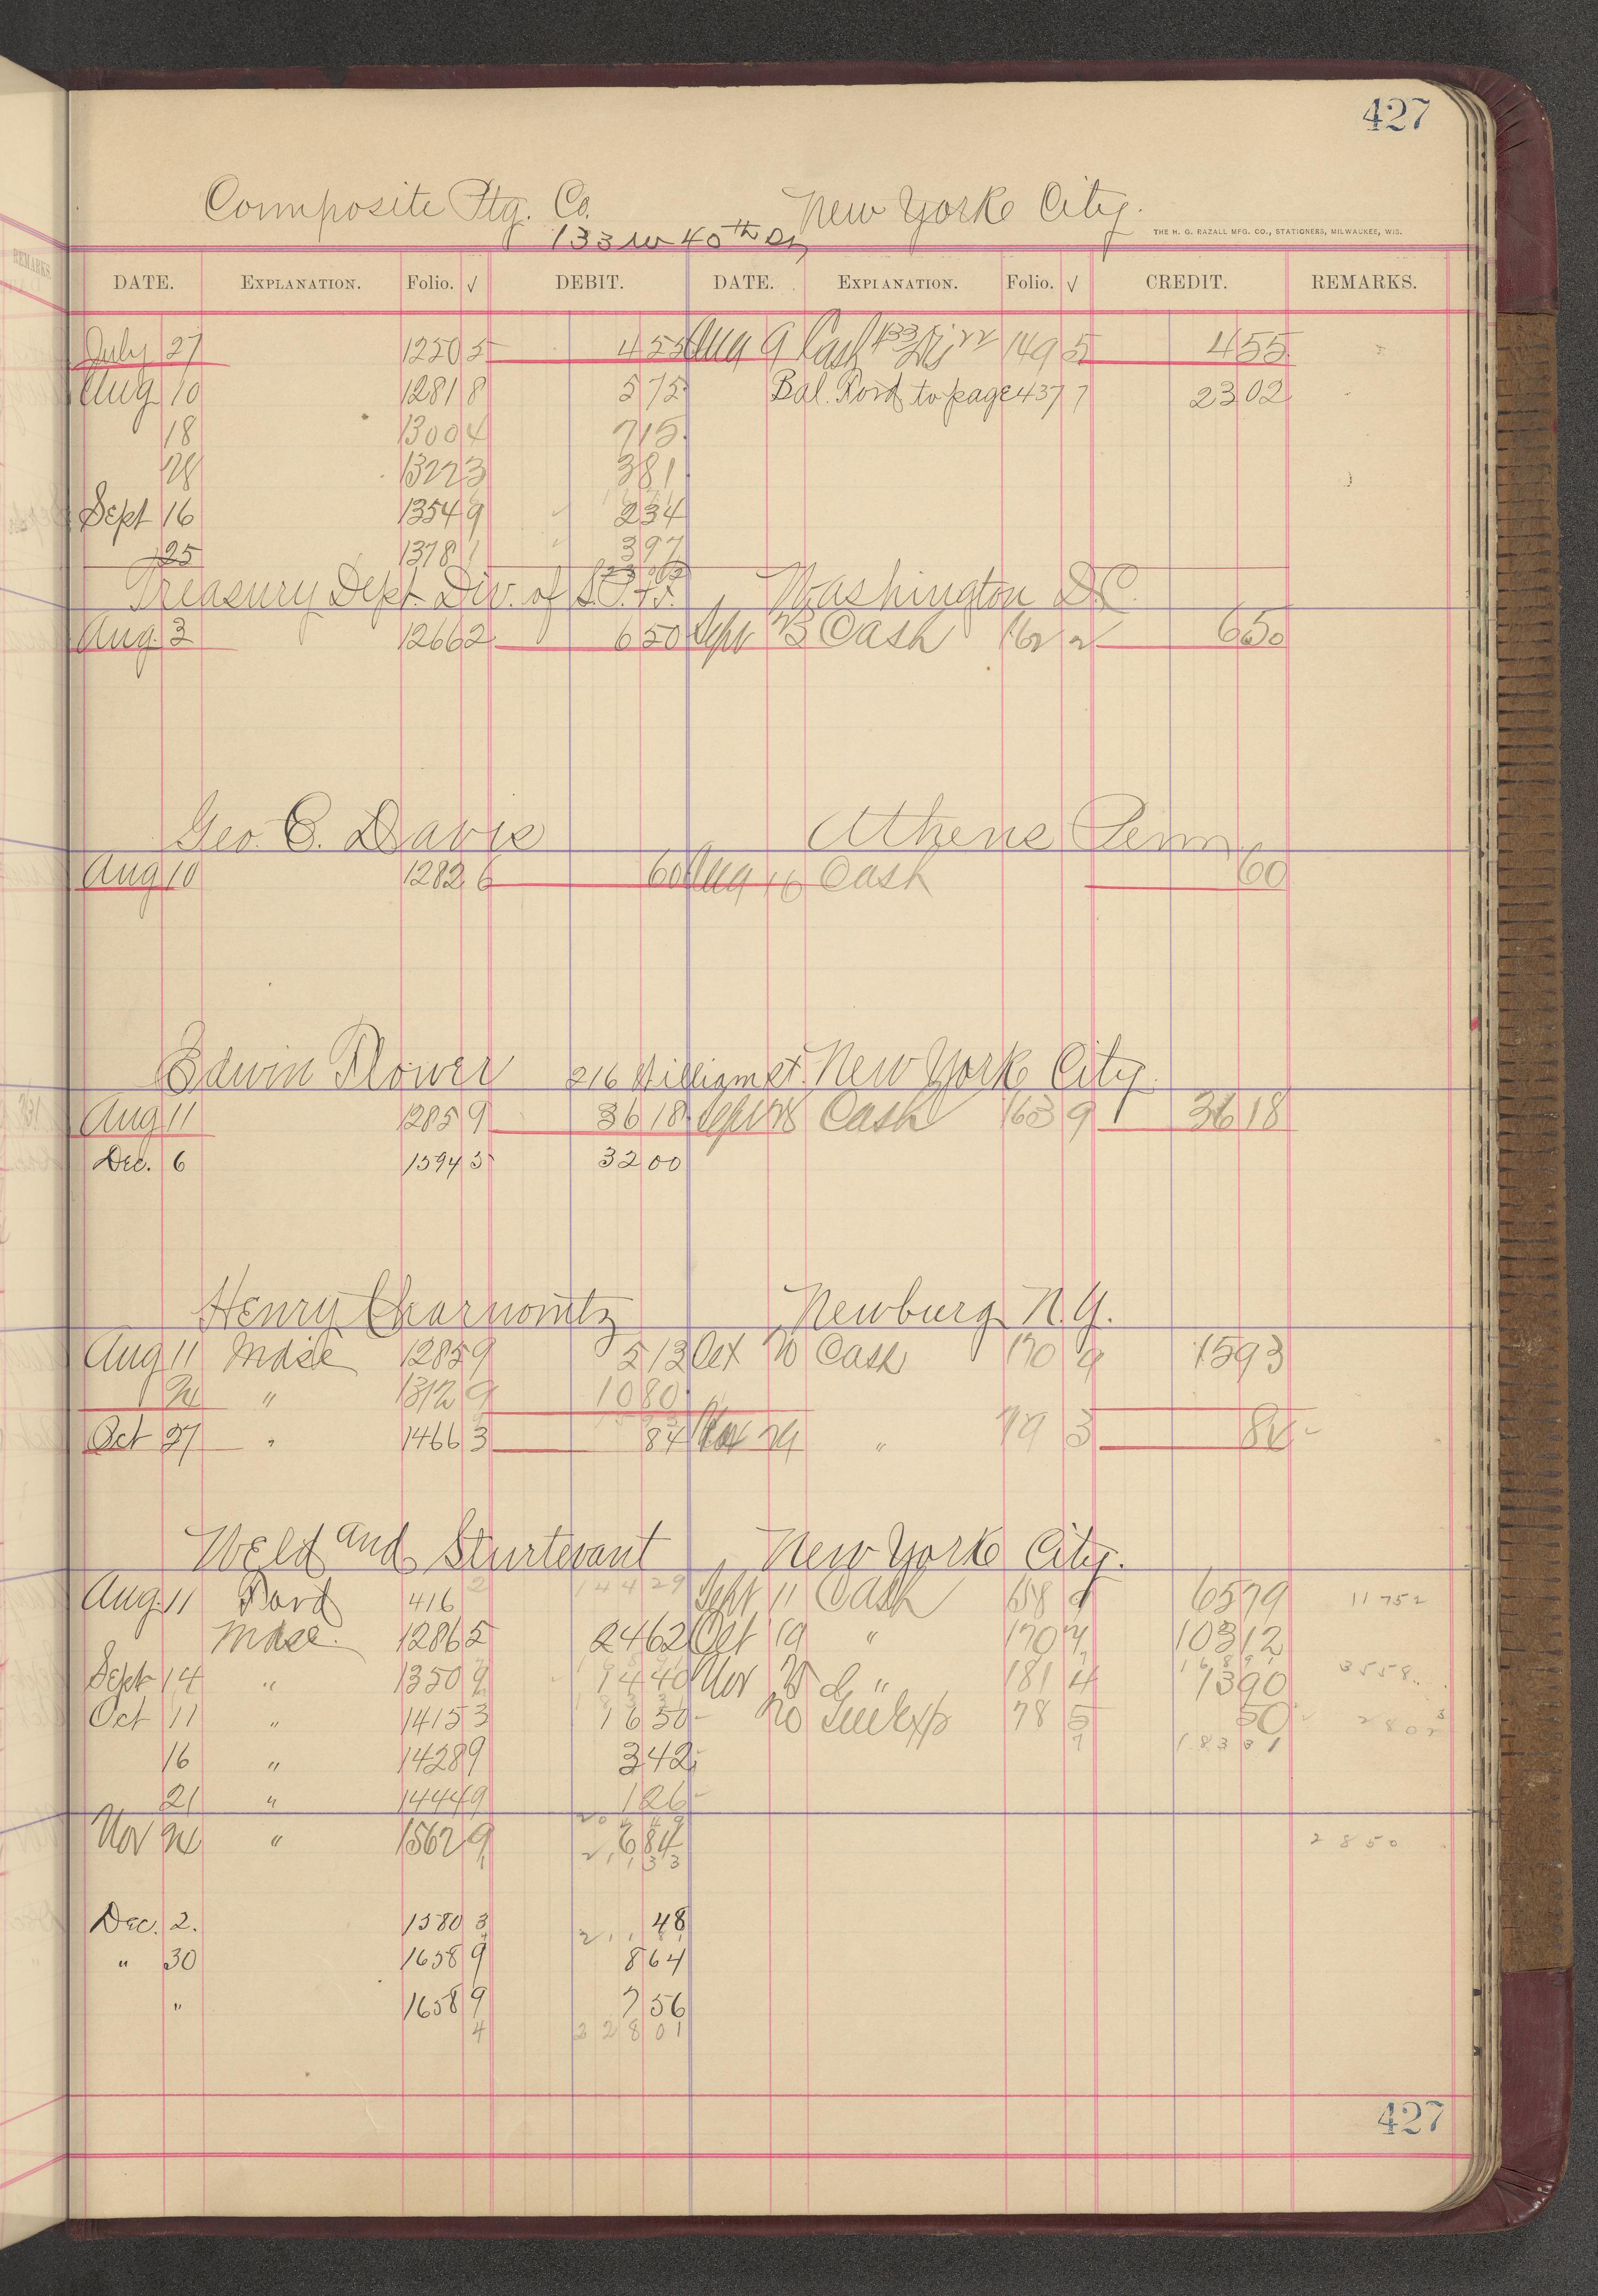 427
Composite Ptg. Co. New York City.
133 W 40th St
THE H. G. RAZALL MFG. CO., STATIONERS, MILWAUKEE, WIS.
DATE. EXPLANATION. Folio. √ DEBIT. DATE. EXPLANATION. Folio. √ CREDIT. REMARKS.
July 27 1250 5 4 55 Aug 9 Cash 149 5 4 55
Aug 10 1281 8 5 75 Bal. Ford to page 437 7 23 02
18 1300 4 7 15
28 1322 3 3 81
Sept 16 1354 9 2 34
25 1378 1 3 97
23 02
Treasury Dept. Div. of S.P.&S. Washington D.C.
Aug. 3 1266 2 6 50 Sept 23 Cash 162 2 6 50
Geo. C. Davis Athens Penn
Aug 10 1282 6 60 Aug 10 Cash 60
Edwin Flower 216 William St. New York City
Aug 11 1285 9 36 18 Sept 28 Cash 163 9 36 18
Dec. 6 1594 5 32 00
Henry Charnowitz Newburg N.Y.
Aug 11 Mdse 1285 9 5 13 Oct 20 Cash 170 9 15 93
24 " 1312 9 10 80
15 93
Oct 27 " 1466 3 84 Nov 24 " 79 3 84
Weld and Sturtevant New York City.
Aug. 11 Ford 416 2 144 29 Sept 11 Cash 158 9 65 79 117 52
Mdse. 1286 5 24 62 Oct 19 " 170 7 103 12
168 91
Sept 14 " 1350 9 14 40 Nov 25 " 181 4 13 90 35 58
183 31
Oct 11 " 1415 3 16 50 20 Gen Exp 78 5 50 28 02
7 183 31
16 " 1428 9 3 42
21 " 1444 9 1 26
204 49
Nov 24 " 1562 9 6 84 28 50
211 33
Dec. 2. 1580 3 48
211 81
" 30 1658 9 8 64
" 1658 9 7 56
4 228 01
427